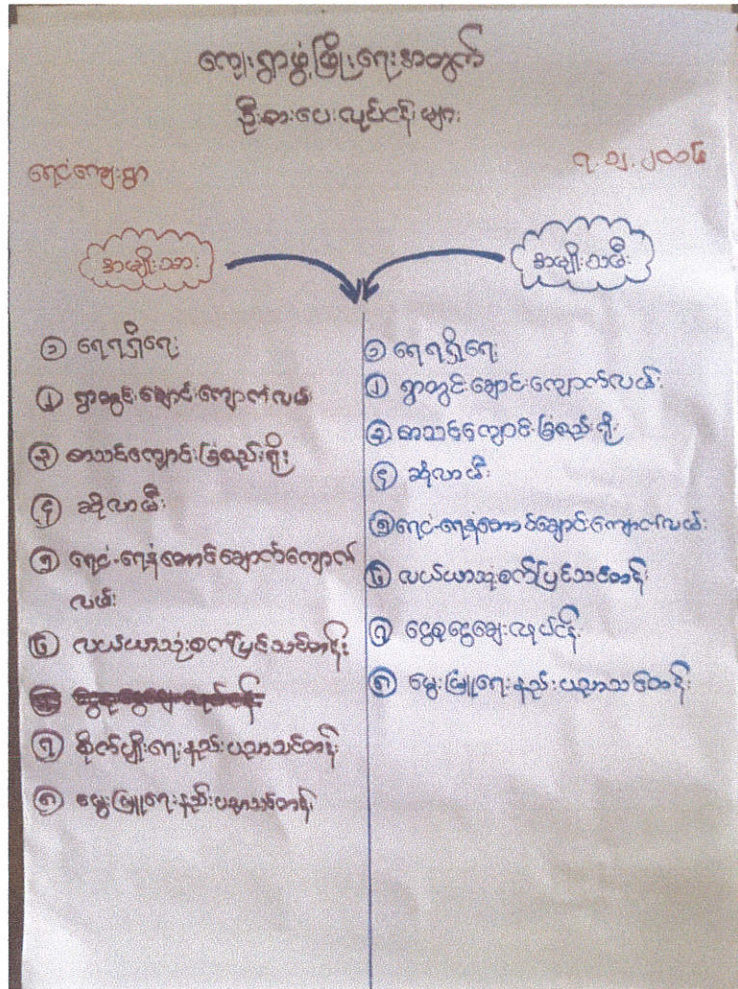 ကျေးရွာဖွံ့ဖြိုးရေးအတွက်
ဦးစားပေးလုပ်ငန်းများ
ရေငံကျေးရွာ
၇.၁၂.၂၀၁၆
အမျိုးသား
အမျိုးသမီး
၁ ရေရရှိရေး
၂ ရွာတွင်းချောင်းကျောက်လမ်း
၃ စာသင်ကျောင်းခြံစည်းရိုး
၄ ဆိုလာမီး
၅ ရေငံ-ရေနံတောင်ချောက်ကျောက်
လမ်း
၆ လယ်ယာသုံးစက်ပြင်သင်တန်း
၇ စိုက်ပျိုးရေးနည်းပညာသင်တန်း
၈ မွေးမြူရေးနည်းပညာသင်တန်း
၁ ရေရရှိရေး
၂ ရွာတွင်းချောင်းကျောက်လမ်း
၃ စာသင်ကျောင်းခြံစည်းရိုး
၄ ဆိုလာမီး
၅ ရေငံ-ရေနံတောင်ချောင်းကျောက်လမ်း
၆ လယ်ယာသုံးစက်ပြင်သင်တန်း
၇ ငွေစုငွေချေးလုပ်ငန်း
၈ မွေးမြူရေးနည်းပညာသင်တန်း